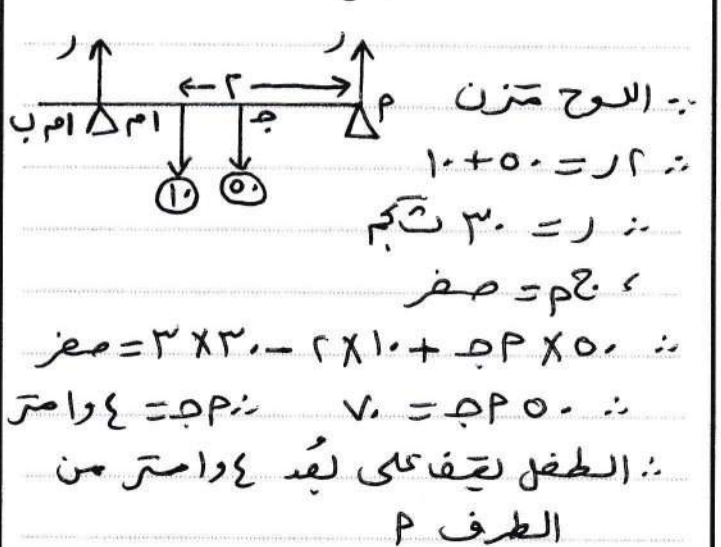 ر ر
←٢→
ب ١م ١م ج م
١٠ ٥٠
∵ اللوح متزن
∴ ٢ر = ٥٠+١٠
∴ ر = ٣٠ ث كجم
، جم = صفر
∴ ٥٠ × م ج + ١٠×٢ - ٣٠×٣ = صفر
∴ ٥٠ م ج = ٧٠ ∴ م ج = ١٫٤ متر
∴ الطفل يقف على بُعد ١٫٤ متر من
الطرف م